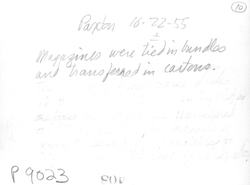 10
Paxton 10-22-55
Magazines were tied in bundles
and transferred in cartons.
P 9023